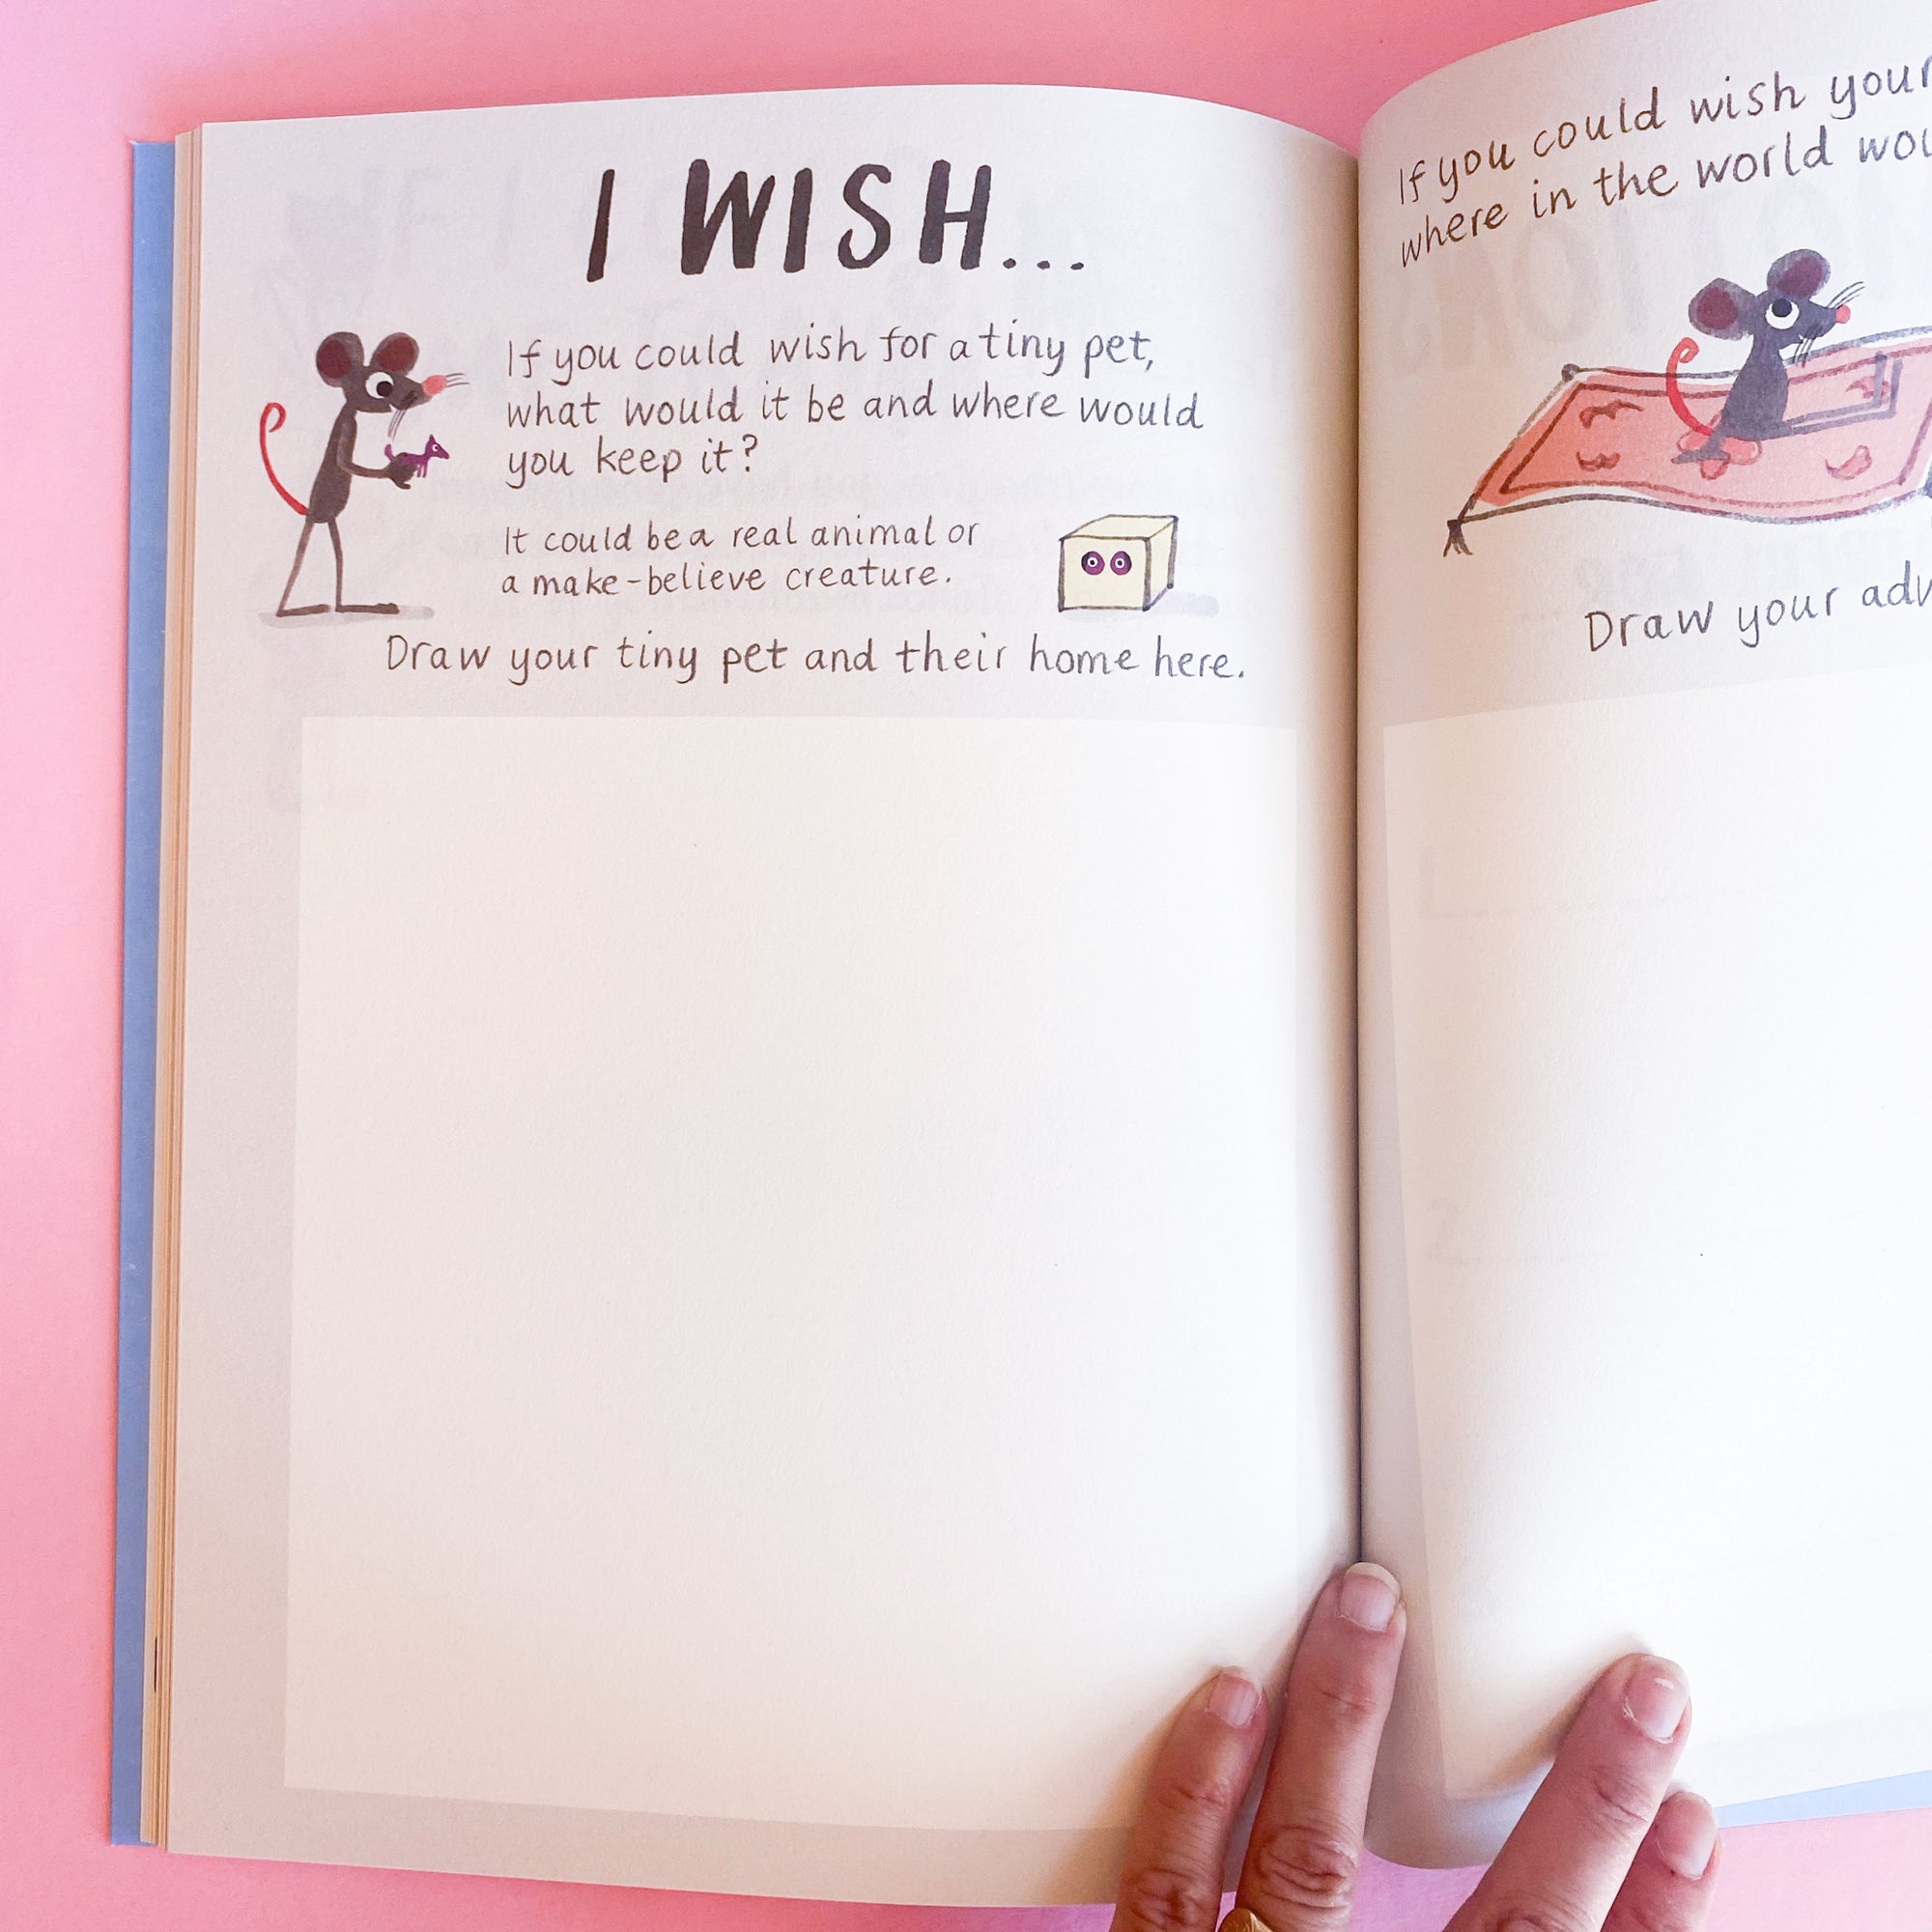 I WISH...
If you could wish for a tiny pet,
what would it be and where would
you keep it?
It could be a real animal or
a make-believe creature.
Draw your tiny pet and their home here.
If you could wish
where in the world
Draw your